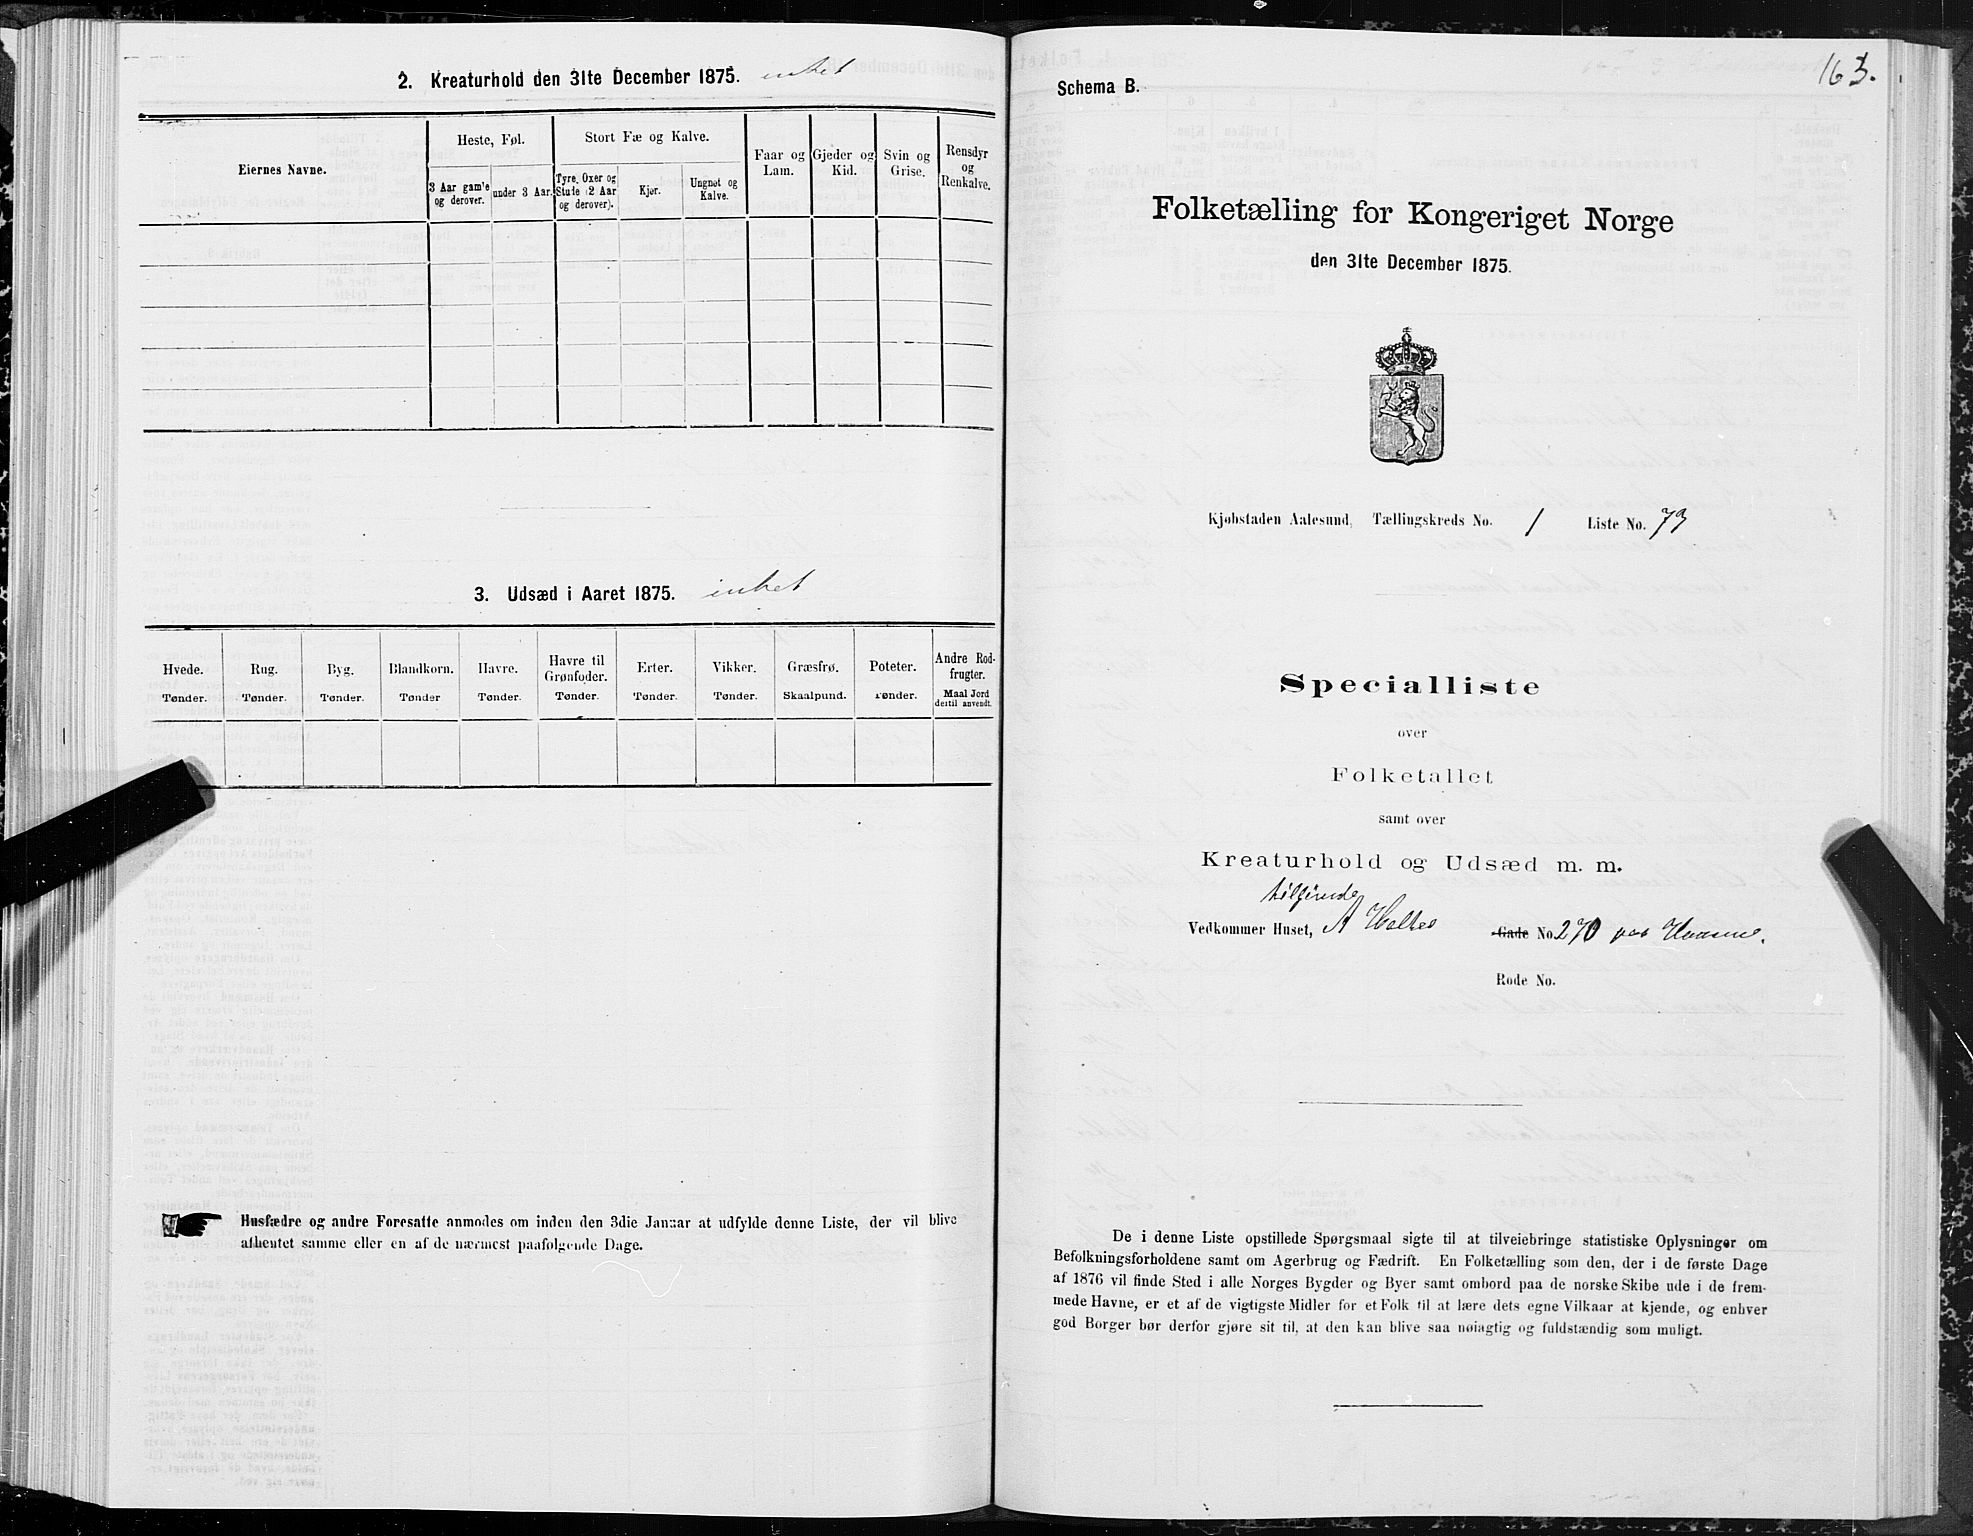 2. Kreaturhold den 31te December 1875. intet
Eiernes Navne.
Heste, Føl.
Stort Fæ og Kalve.
Faar og Lam.
Gjeder og Kid.
Svin og Grise.
Rensdyr og Renkalve.
3 Aar gam'e og derover.
under 3 Aar.
Tyre, Oxer og Stude (2 Aar og derover).
Kjør.
Ungnøt og Kalve.
3. Udsæd i Aaret 1875. intet
Hvede.
Rug.
Byg.
Blandkorn.
Havre.
Havre til Grønfoder.
Erter.
Vikker.
Græsfrø.
Poteter.
Andre Rodfrugter.
Tønder.
Tønder.
Tønder.
Tønder
Tønder.
Tønder.
Tønder.
Tønder.
Skaalpund.
Tønder.
Maal Jord dertil anvendt.
Husfædre og andre Foresatte anmodes om inden den 3die Januar at udfylde denne Liste, der vil blive
afhentet samme eller en af de nærmest paafølgende Dage.
163.
Schema B.
Folketælling for Kongeriget Norge
den 31te December 1875.
Kjøbstaden Aalesund, Tællingskreds No. 1 Liste No. 73
Specialliste
over
Folketallet
samt over
Kreaturhold og Udsæd m. m.
tilhørende
Vedkommer Huset, A Holtes Gade No. 270 paa
Rode No.
De i denne Liste opstillede Spørgsmaal sigte til at tilveiebringe statistiske Oplysninger om
Befolkningsforholdene samt om Agerbrug og Fædrift. En Folketælling som den, der i de første Dage
af 1876 vil finde Sted i alle Norges Bygder og Byer samt ombord paa de norske Skibe ude i de frem-
mede Havne, er et af de vigtigste Midler for et Folk til at lære dets egne Vilkaar at kjende, og enhver
god Borger bør derfor gjøre sit til, at den kan blive saa nøiagtig og fuldstændig som muligt.